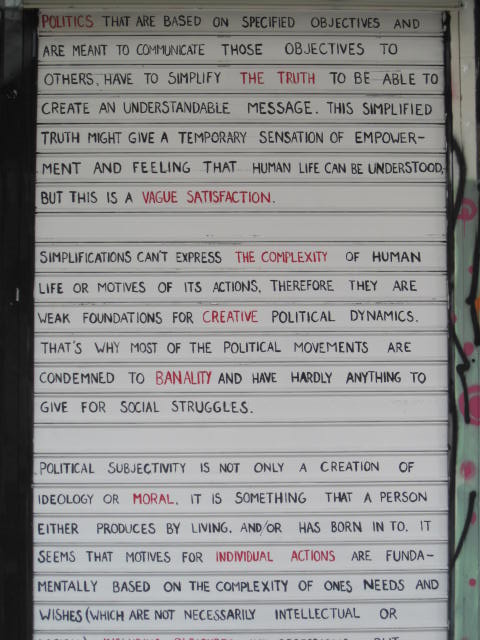 POLITICS THAT ARE BASED ON SPECIFIED OBJECTIVES AND
ARE MEANT TO COMMUNICATE THOSE OBJECTIVES TO
OTHERS, HAVE TO SIMPLIFY THE TRUTH TO BE ABLE TO
CREATE AN UNDERSTANDABLE MESSAGE. THIS SIMPLIFIED
TRUTH MIGHT GIVE A TEMPORARY SENSATION OF EMPOWER-
MENT AND FEELING THAT HUMAN LIFE CAN BE UNDERSTOOD,
BUT THIS IS A VAGUE SATISFACTION.
SIMPLIFICATIONS CAN'T EXPRESS THE COMPLEXITY OF HUMAN
LIFE OR MOTIVES OF ITS ACTIONS, THEREFORE THEY ARE
WEAK FOUNDATIONS FOR CREATIVE POLITICAL DYNAMICS.
THAT'S WHY MOST OF THE POLITICAL MOVEMENTS ARE
CONDEMNED TO BANALITY AND HAVE HARDLY ANYTHING TO
GIVE FOR SOCIAL STRUGGLES.
POLITICAL SUBJECTIVITY IS NOT ONLY A CREATION OF
IDEOLOGY OR MORAL, IT IS SOMETHING THAT A PERSON
EITHER PRODUCES BY LIVING, AND/OR HAS BORN IN TO. IT
SEEMS THAT MOTIVES FOR INDIVIDUAL ACTIONS ARE FUNDA-
MENTALLY BASED ON THE COMPLEXITY OF ONES NEEDS AND
WISHES (WHICH ARE NOT NECESSARILY INTELLECTUAL OR